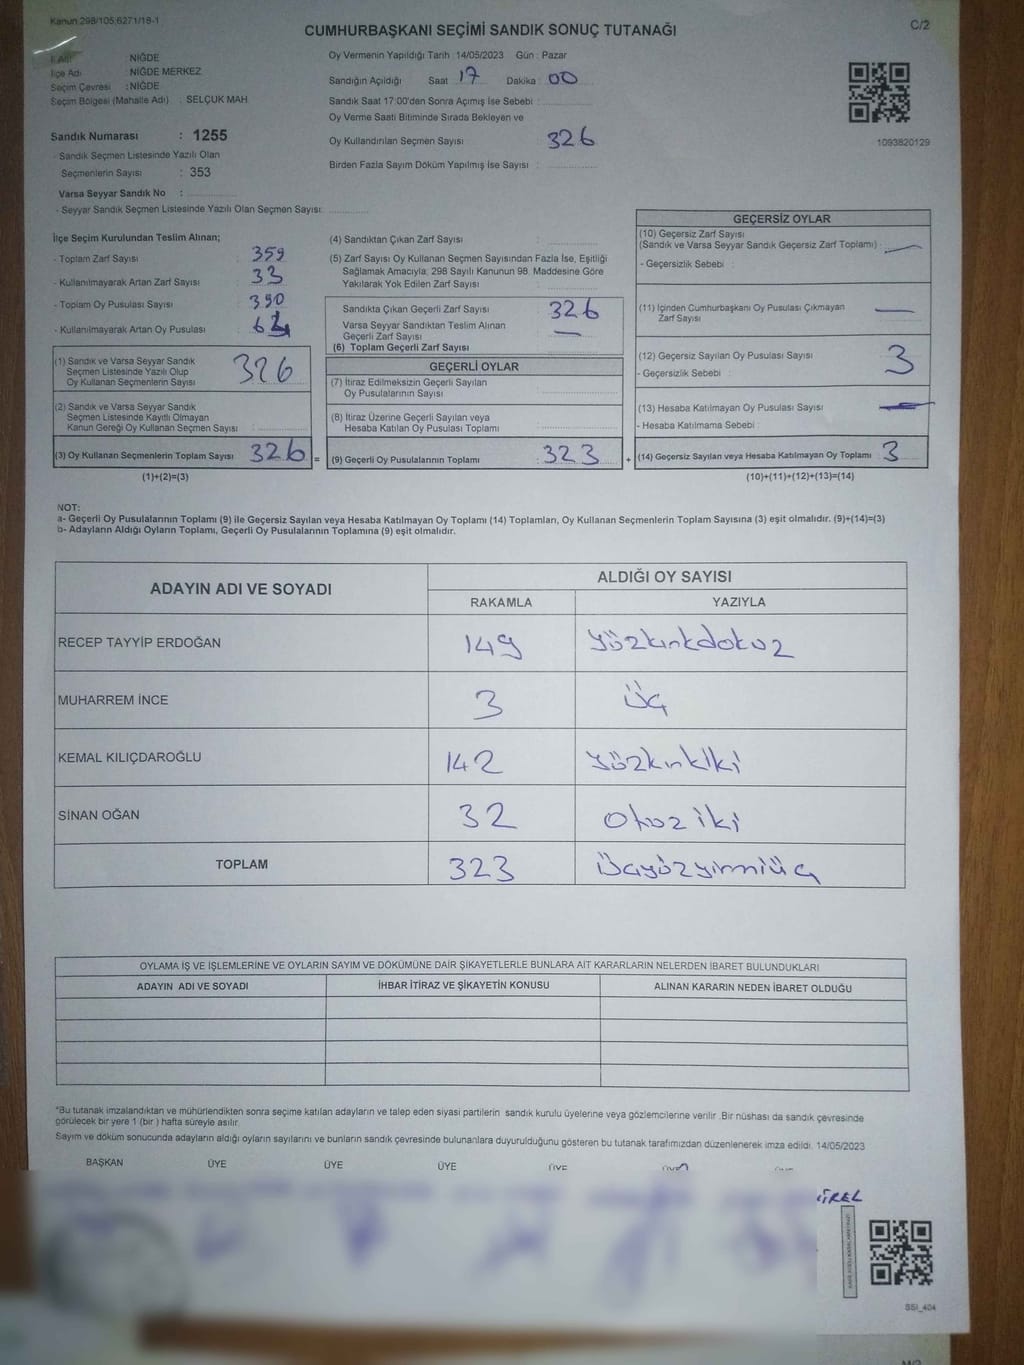 Kanun 298/105;6271/18-1
C/2
CUMHURBAŞKANI SEÇİMİ SANDIK SONUÇ TUTANAĞI
İl Adı : NİĞDE
İlçe Adı : NİĞDE MERKEZ
Seçim Çevresi : NİĞDE
Seçim Bölgesi (Mahalle Adı) : SELÇUK MAH
Sandık Numarası : 1255
- Sandık Seçmen Listesinde Yazılı Olan
Seçmenlerin Sayısı : 353
Varsa Seyyar Sandık No :
- Seyyar Sandık Seçmen Listesinde Yazılı Olan Seçmen Sayısı:
Oy Vermenin Yapıldığı Tarih :14/05/2023 Gün : Pazar
Sandığın Açıldığı Saat 17 Dakika : 00
Sandık Saat 17:00'den Sonra Açımış İse Sebebi :
Oy Verme Saati Bitiminde Sırada Bekleyen ve
Oy Kullandırılan Seçmen Sayısı : 326
Birden Fazla Sayım Döküm Yapılmış İse Sayısı :
1093820129
İlçe Seçim Kurulundan Teslim Alınan;
- Toplam Zarf Sayısı : 359
- Kullanılmayarak Artan Zarf Sayısı : 33
- Toplam Oy Pusulası Sayısı : 390
- Kullanılmayarak Artan Oy Pusulası :
(1) Sandık ve Varsa Seyyar Sandık
Seçmen Listesinde Yazılı Olup
Oy Kullanan Seçmenlerin Sayısı 326
(2) Sandık ve Varsa Seyyar Sandık
Seçmen Listesinde Kayıtlı Olmayan
Kanun Gereği Oy Kullanan Seçmen Sayısı :
(3) Oy Kullanan Seçmenlerin Toplam Sayısı 326 =
(1)+(2)=(3)
(4) Sandıktan Çıkan Zarf Sayısı :
(5) Zarf Sayısı Oy Kullanan Seçmen Sayısından Fazla İse, Eşitliği
Sağlamak Amacıyla, 298 Sayılı Kanunun 98. Maddesine Göre
Yakılarak Yok Edilen Zarf Sayısı :
Sandıkta Çıkan Geçerli Zarf Sayısı : 326
Varsa Seyyar Sandıktan Teslim Alınan
Geçerli Zarf Sayısı : —
(6) Toplam Geçerli Zarf Sayısı
GEÇERLİ OYLAR
(7) İtiraz Edilmeksizin Geçerli Sayılan
Oy Pusulalarının Sayısı :
(8) İtiraz Üzerine Geçerli Sayılan veya
Hesaba Katılan Oy Pusulası Toplamı
(9) Geçerli Oy Pusulalarının Toplamı : 323 +
GEÇERSİZ OYLAR
(10) Geçersiz Zarf Sayısı
(Sandık ve Varsa Seyyar Sandık Geçersiz Zarf Toplamı) : —
- Geçersizlik Sebebi :
(11) İçinden Cumhurbaşkanı Oy Pusulası Çıkmayan
Zarf Sayısı : —
(12) Geçersiz Sayılan Oy Pusulası Sayısı : 3
- Geçersizlik Sebebi :
(13) Hesaba Katılmayan Oy Pusulası Sayısı : —
- Hesaba Katılmama Sebebi :
(14) Geçersiz Sayılan veya Hesaba Katılmayan Oy Toplamı : 3
(10)+(11)+(12)+(13)=(14)
NOT:
a- Geçerli Oy Pusulalarının Toplamı (9) ile Geçersiz Sayılan veya Hesaba Katılmayan Oy Toplamı (14) Toplamları, Oy Kullanan Seçmenlerin Toplam Sayısına (3) eşit olmalıdır. (9)+(14)=(3)
b- Adayların Aldığı Oyların Toplamı, Geçerli Oy Pusulalarının Toplamına (9) eşit olmalıdır.
ADAYIN ADI VE SOYADI ALDIĞI OY SAYISI
RAKAMLA YAZIYLA
RECEP TAYYİP ERDOĞAN 149 yüzkırkdokuz
MUHARREM İNCE 3 üç
KEMAL KILIÇDAROĞLU 142 yüzkırkiki
SİNAN OĞAN 32 otuz iki
TOPLAM 323 üçyüzyirmiüç
OYLAMA İŞ VE İŞLEMLERİNE VE OYLARIN SAYIM VE DÖKÜMÜNE DAİR ŞİKAYETLERLE BUNLARA AİT KARARLARIN NELERDEN İBARET BULUNDUKLARI
ADAYIN ADI VE SOYADI İHBAR İTİRAZ VE ŞİKAYETİN KONUSU ALINAN KARARIN NEDEN İBARET OLDUĞU
*Bu tutanak imzalandıktan ve mühürlendikten sonra seçime katılan adayların ve talep eden siyasi partilerin sandık kurulu üyelerine veya gözlemcilerine verilir .Bir nüshası da sandık çevresinde
görülecek bir yere 1 (bir ) hafta süreyle asılır.
Sayım ve döküm sonucunda adayların aldığı oyların sayılarını ve bunların sandık çevresinde bulunanlara duyurulduğunu gösteren bu tutanak tarafımızdan düzenlenerek imza edildi. 14/05/2023
BAŞKAN ÜYE ÜYE ÜYE ÜYE ÜYE
SSI_404